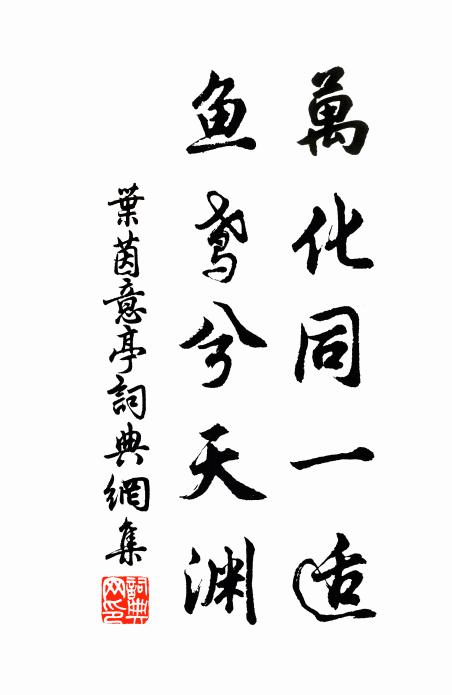 萬化同一适
鱼鸢兮天渊
葉茵意亭詞典網集
詞典網印